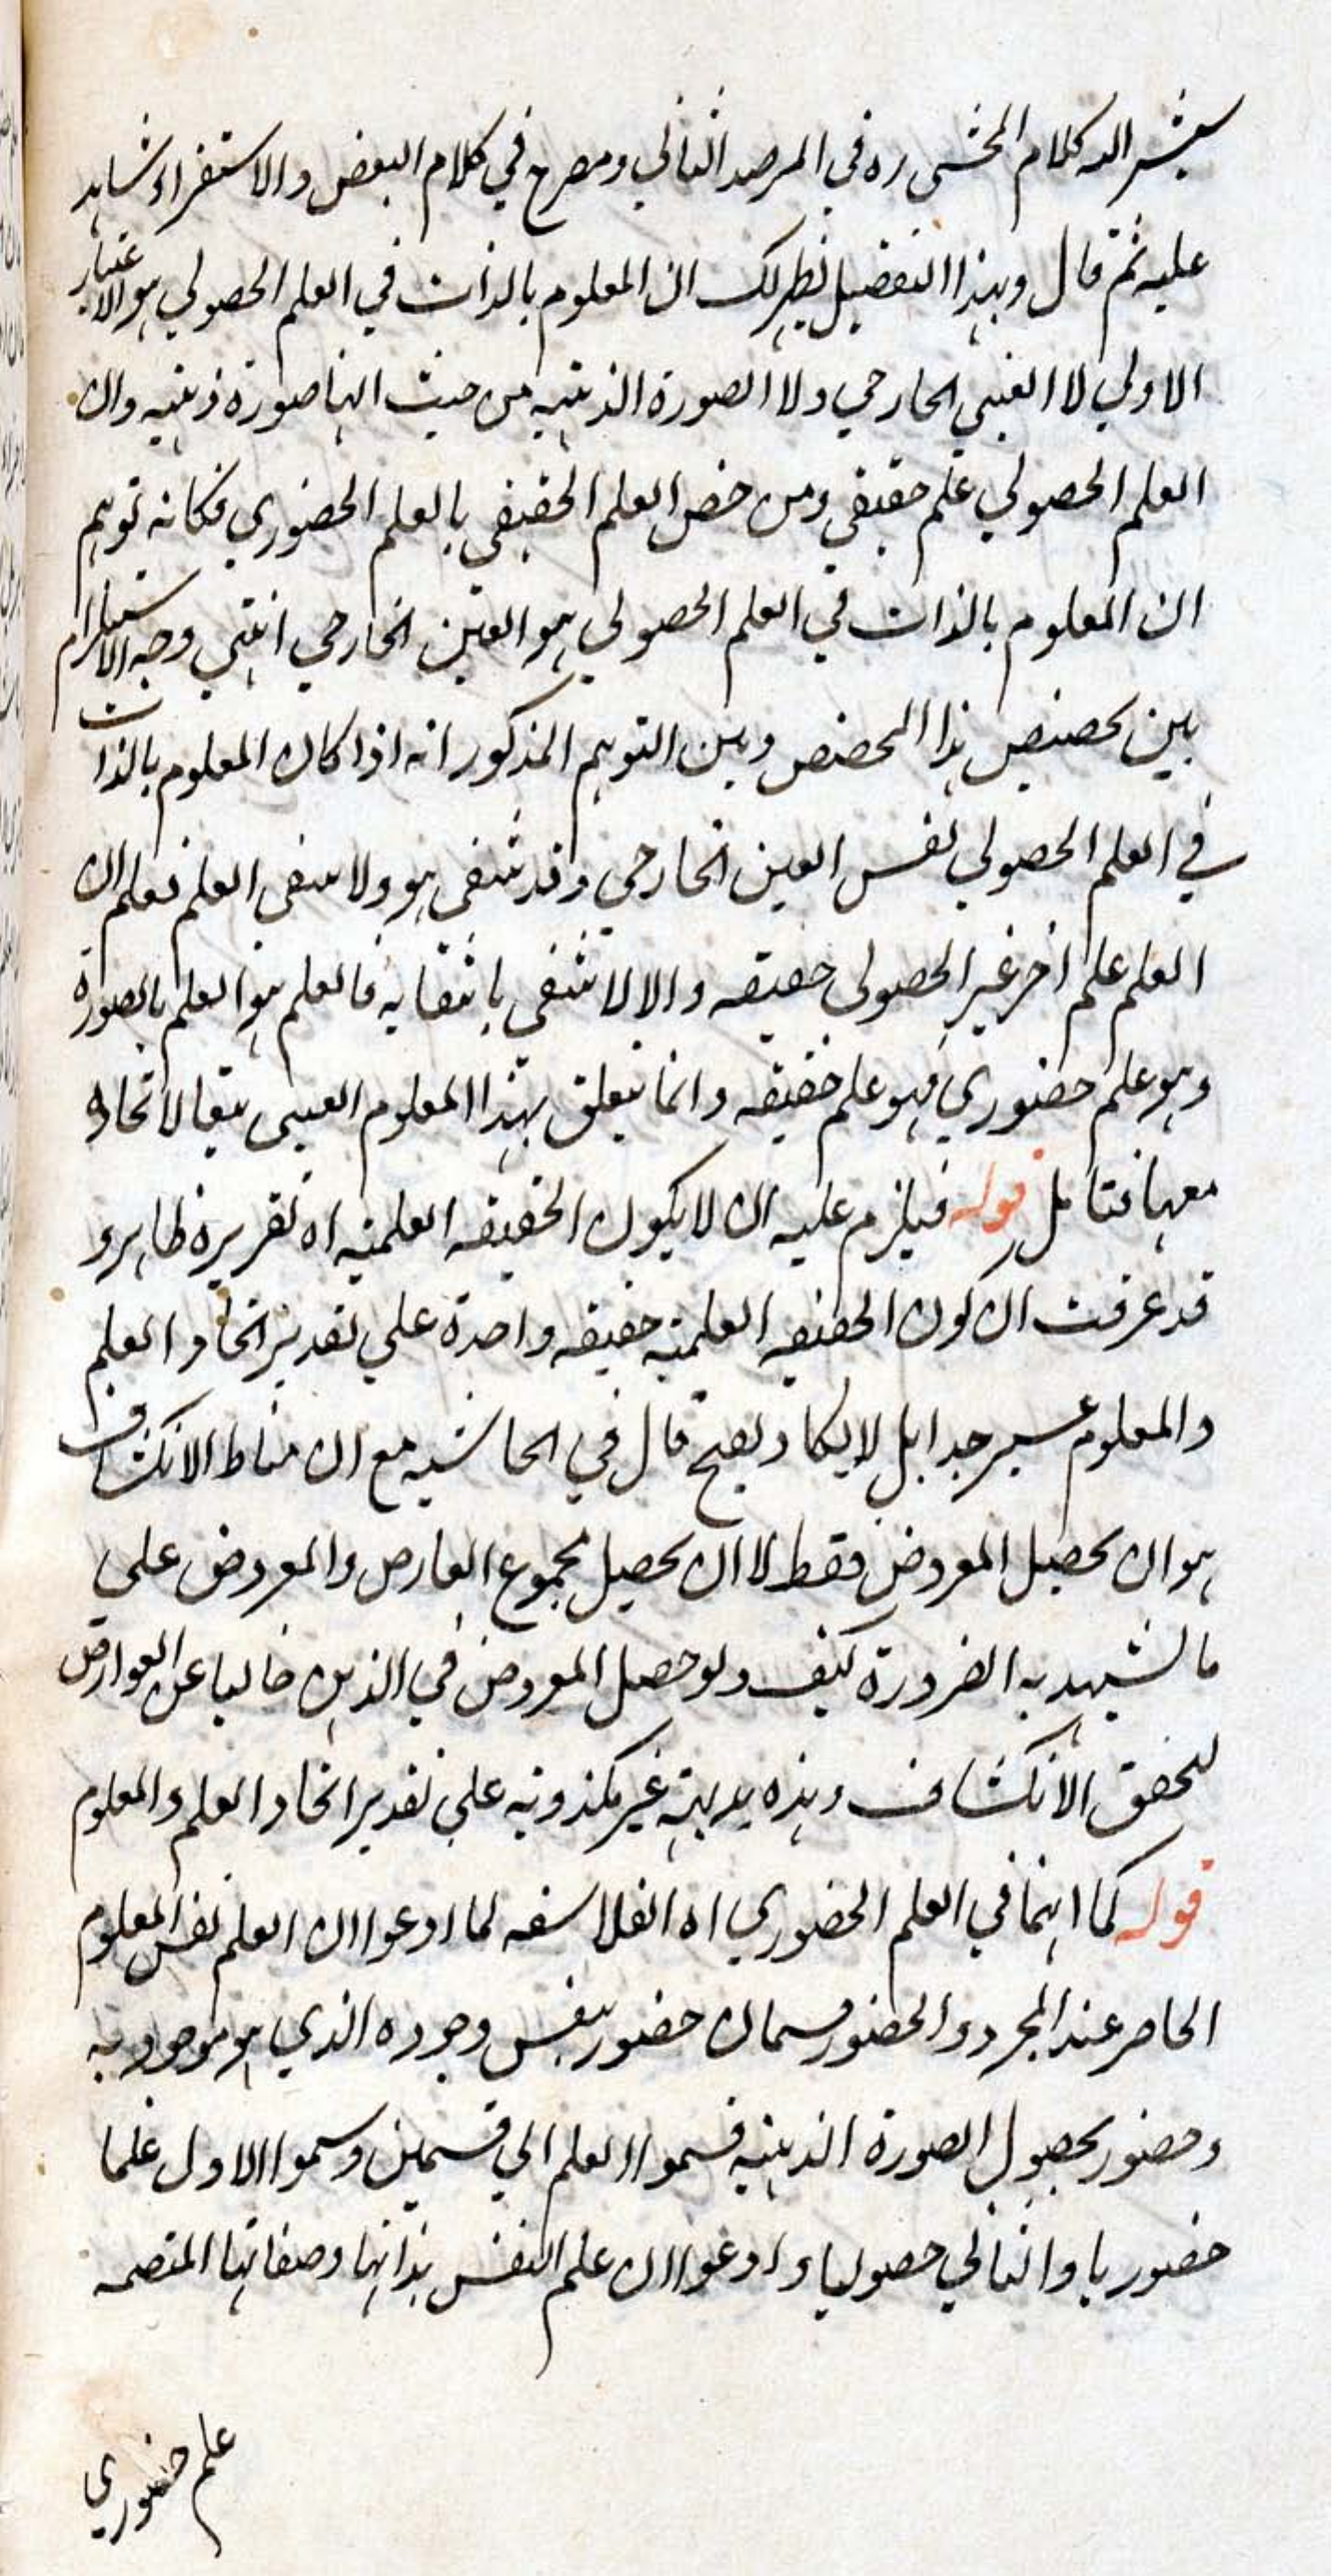 يشير اليه كلام المحشى ره في المرصد الثاني ومصرح في كلام البعض والاستقراء شاهد
عليه ثم قال وبهذا التفصيل يظهر لك ان المعلوم بالذات في العلم الحصولي هو الاعتبار
الاولي لا العيني الخارجي ولا الصورة الذهنيه من حيث انها صورة ذهنيه وان
العلم الحصولي علم حقيقي ومن خص العلم الحقيقي بالعلم الحضوري فكانه توهم
ان المعلوم بالذات في العلم الحصولي هو العين الخارجي انتهي وجه الاستلزام
بين تخصيص هذا المخصص وبين التوهم المذكور انه اذا كان المعلوم بالذات
في العلم الحصولي نفس العين الخارجي وقد تنتفي هو ولا ينتفى العلم فعلم ان
العلم علم اخر غير الحصولى حقيقه والا لانتفى بانتفايه فالعلم هو العلم بالصورة
وهو علم حضوري فهو علم حقيقه وانما يتعلق بهذا المعلوم العينى تبعا لاتحاده
معها فتامل قوله فيلزم عليه ان لا يكون الحقيقه العلميه اه تقريره ظاهر و
قد عرفت ان كون الحقيقه العلميه حقيقه واحدة علي تقدير اتحاد العلم
والمعلوم عسير جدا بل لا يكاد يصح قال في الحاشيه مع ان مناط الانكشاف
هو ان يحصل المعروض فقط لا ان يحصل مجموع العارض والمعروض علي
ما تشهد به الضرورة كيف ولو حصل المعروض في الذهن خاليا عن العوارض
لتحقق الانكشاف وهذه بديهية غير مكذوبه علي تقدير اتحاد العلم والمعلوم
قوله كما انهما في العلم الحضوري اه الفلاسفه لما ادعوا ان العلم نفس المعلوم
الحاضر عند المجرد والحضور قسمان حضور بنفس وجوده الذي هو موجود به
وحضور بحصول الصورة الذهنيه قسموا العلم الي قسمين وسموا الاول علما
حضوريا والثاني حصوليا وادعوا ان علم النفس بذاتها وصفاتها المنضمه
علم حضوري